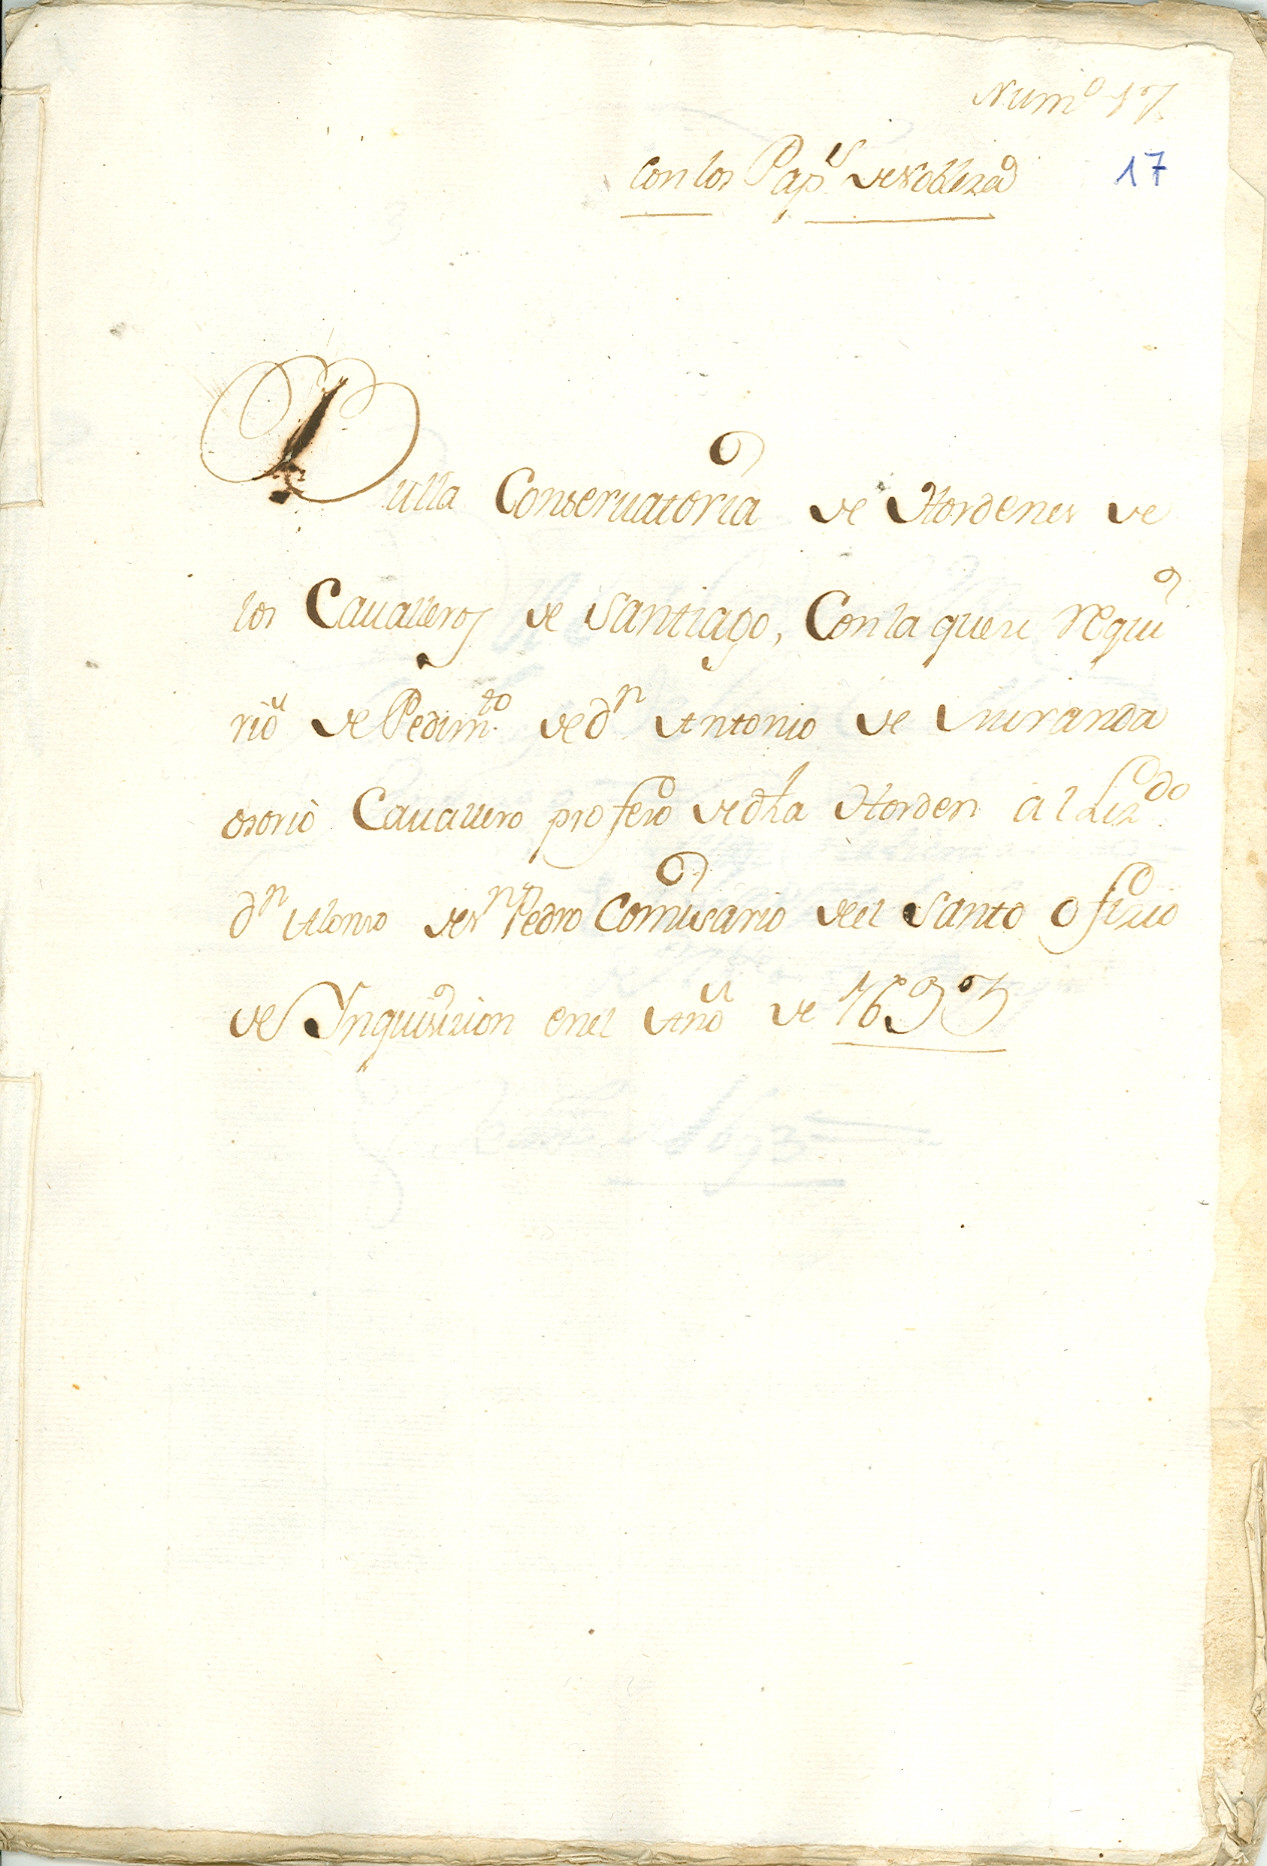 Num.º 17
17
Con los Pap.s de Nobleza
Bulla Conseruatoria de Hordenes de
los Caualleros de Santiago, Con la que se requi
rio de Pedim.to de d.n Antonio de Miranda
osorio Cauallero profeso de dha Horden al Liz.do
d.n Alonso de S.n Pedro Comisario del Santo ofizio
de Ynquisizion en el Año de 1693